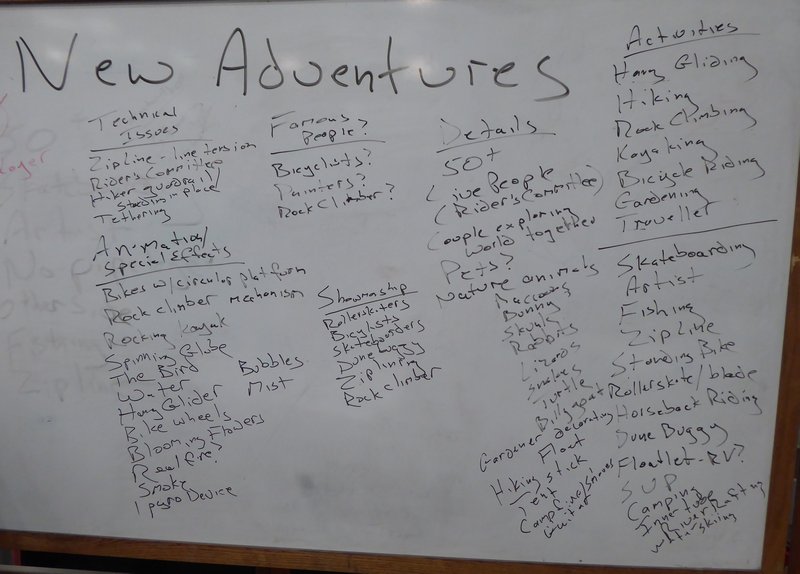 New Adventures
Technical
Issues
Zipline - line tension
Rider's Committee
Hiker quadrail/
in place
Tethering
Animation/
Special Effects
Bikes w/circular platform
Rock climber mechanism
Rocking Kayak
Spinning Globe
The Bird
Water
Hang Glider
Bike wheels
Blooming Flowers
Real fire?
Smoke
1 pyro Device
Bubbles
Mist
Famous
People?
Bicyclists?
Painters?
Rock Climber?
Showmanship
Rollerskaters
Bicylists
Skateboarders
Dune buggy
Ziplining
Rock climber
Details
50+
Live People
(Rider's Committee)
Couple exploring
World together
Pets?
Nature animals
Raccoons
Bunny
Rabbits
Lizards
Snakes
Turtle
Billy goat
Gardener decorating
Float
Hiking stick
Tent
Campfire/smores
Guitar
Activities
Hang Gliding
Hiking
Rock Climbing
Kayaking
Bicycle Riding
Gardening
Traveller
Skateboarding
Artist
Fishing
Zip Line
Standing Bike
Rollerskate/blade
Horseback Riding
Dune Buggy
Floatlet - RV?
SUP
Camping
Inner tube
River Rafting
Waterskiing